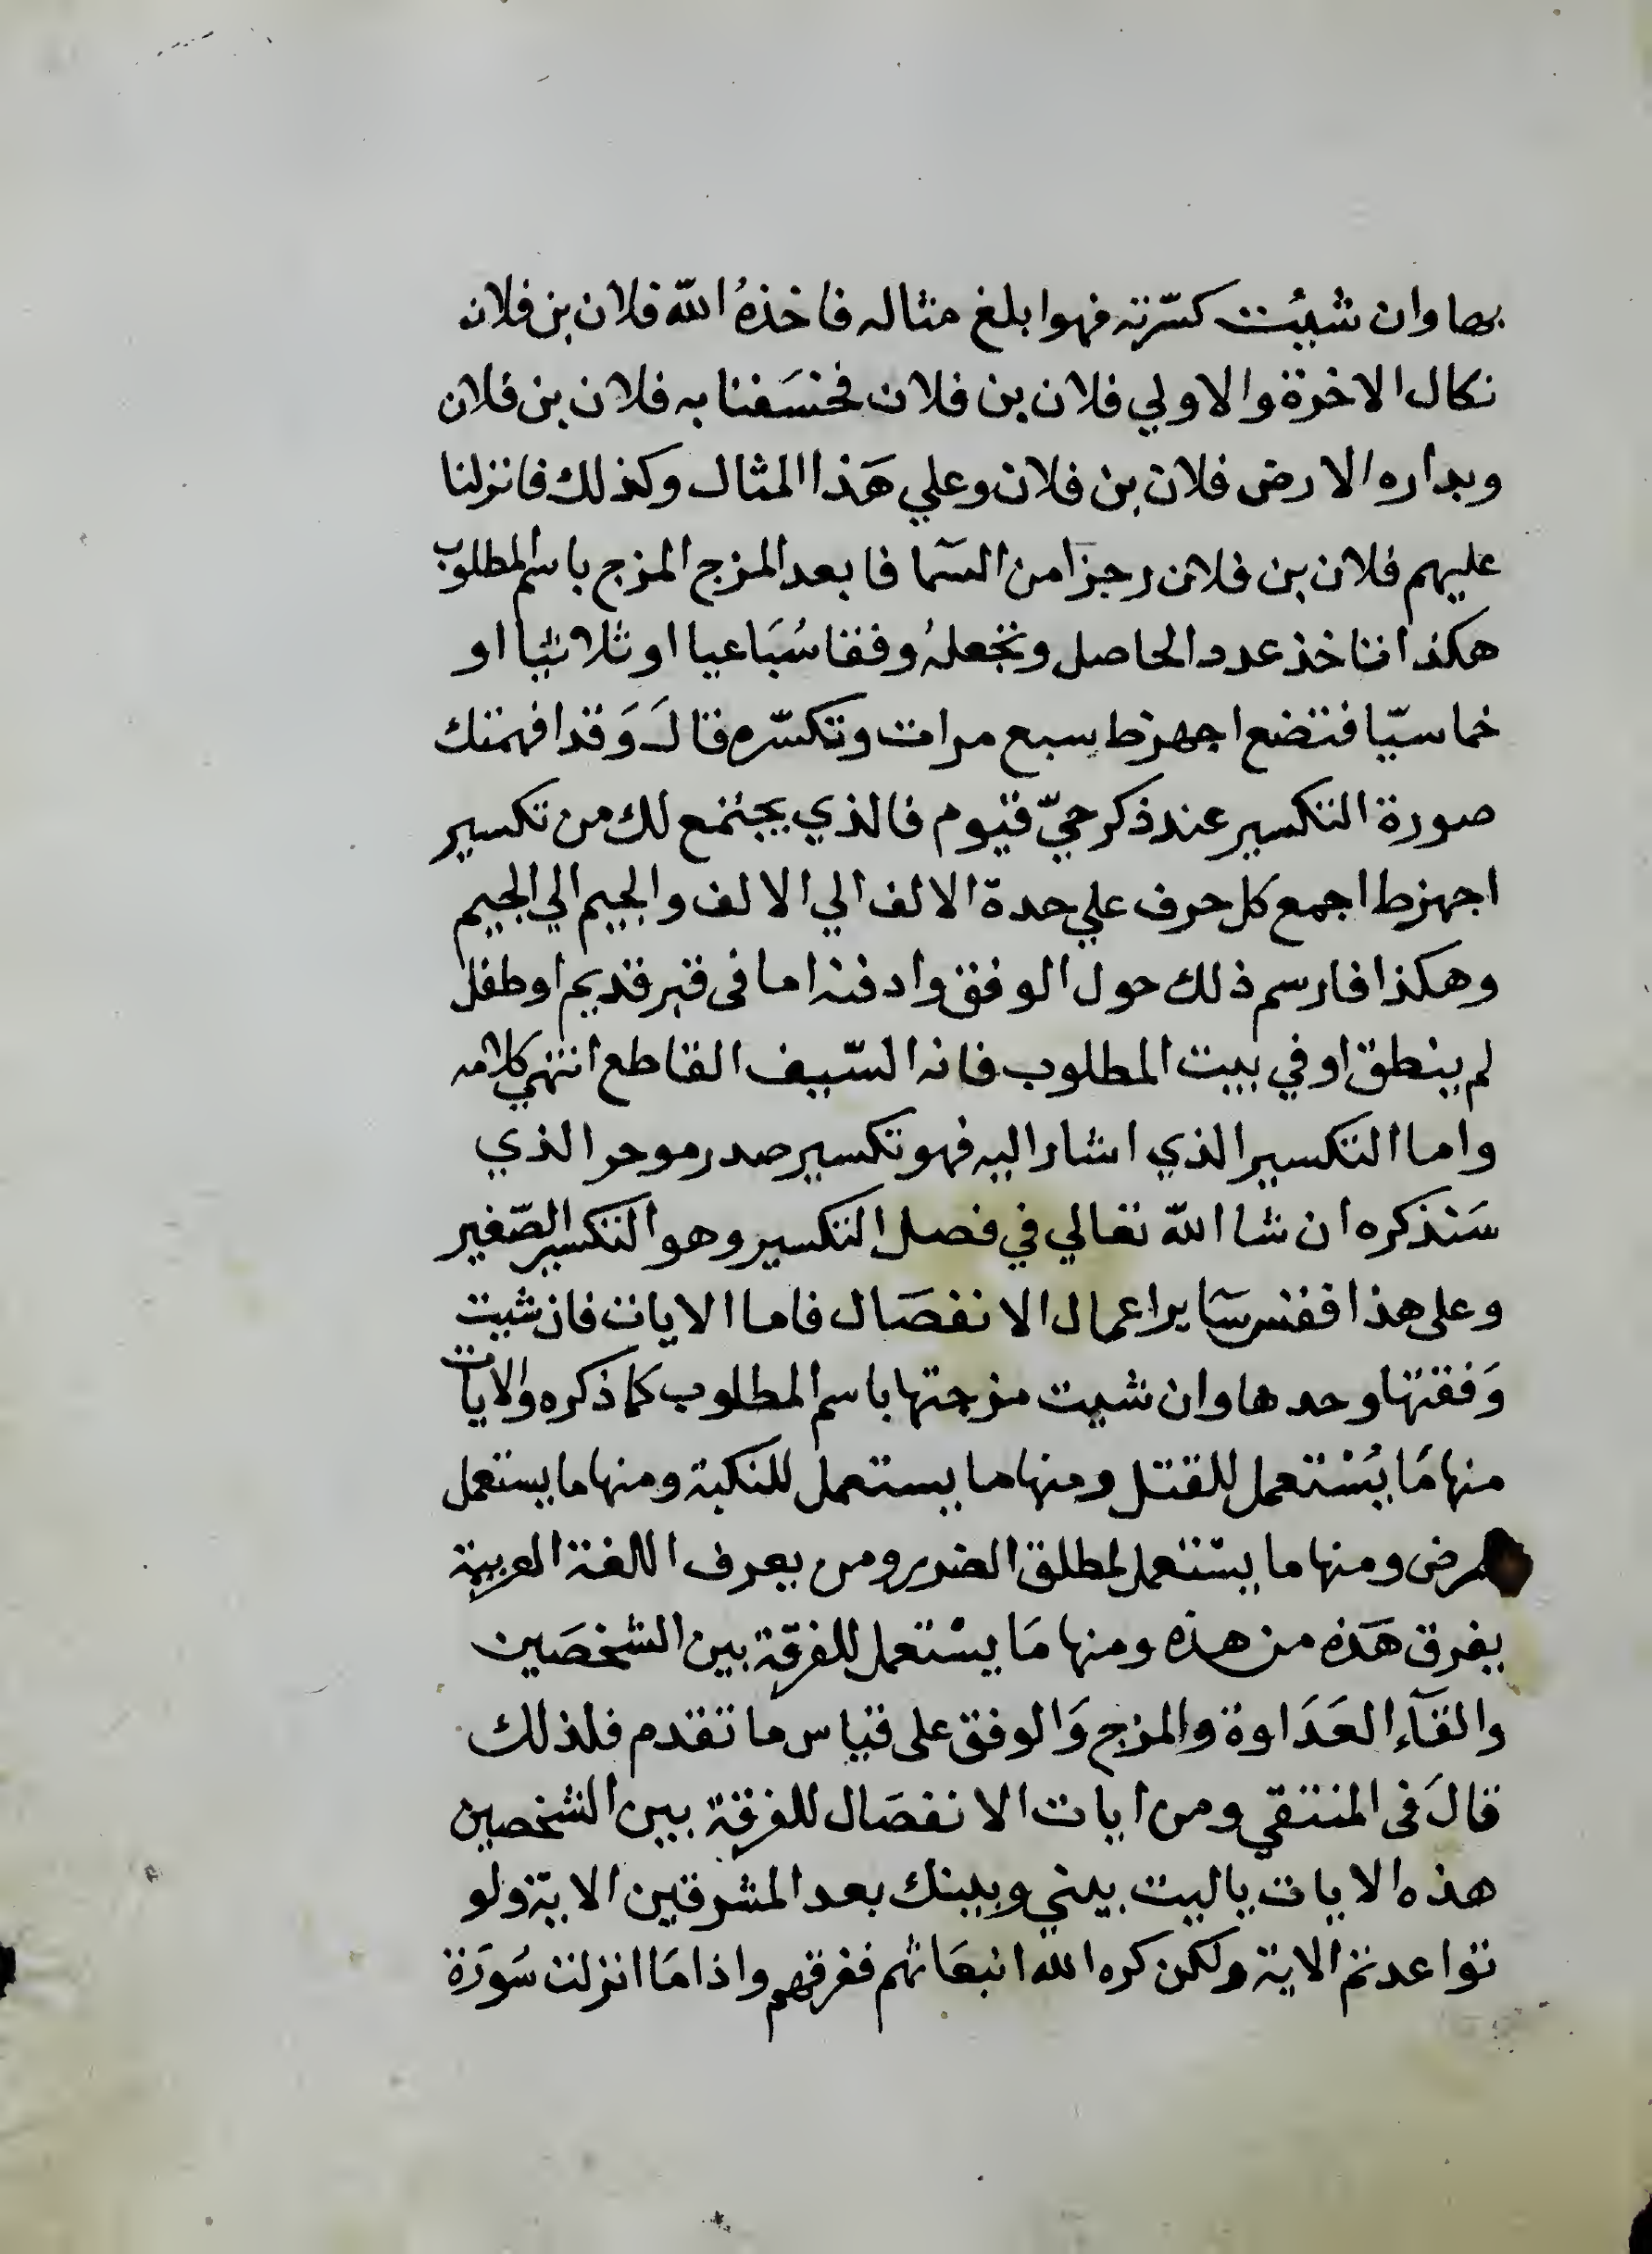 بها وان شيئت كسّرته فهوا بلغ مثاله فاخذهُ الله فلان بن فلان
نكال الاخرة والاولي فلان بن فلان فخسَفنا به فلان بن فلان
وبداره الارض فلان بن فلان وعلي هَذا المثال وكذلك فانزلنا
عليهم فلان بن فلان رجزَا من السّما فا بعد المزج المزج باسم المطلوب
هكذا فتاخذ عدد الحاصل وتجعلهُ وفقا سُبَاعيا او ثلاثيّا او
خماسيّا فتضع اجهزط سبع مرات وتكسّره قالَ وَقد افهمتك
صورة التكسير عند ذكر حيّ قيوم فالذي يجتمع لك من تكسير
اجهزط اجمع كل حرف علي حدة الالف الي الالف والجيم الي الجيم
وهكذا فارسم ذلك حول الوفق وادفنه اما فى قبر قديم او طفل
لم ينطق او في بيت المطلوب فانه السّيف القاطع انتهي كلامه
واما التكسير الذي اشار اليه فهو تكسير صدر موحر الذي
سَنذكره ان شا الله تعالي في فصل التكسير وهو التكسير الصّغير
وعلى هذا فقس سَاير اعمال الانفصَال فاما الايات فان شيت
وَفقتها وحدها وان شيت مزجتها باسم المطلوب كما ذكره والايات
منها مَا يُسْتعمل للقتل ومنها ما يستعمل للنكبة ومنها ما يستعمل
للمرض ومنها ما يسْتعمل لمطلق الضرر ومن يعرف اللغة العربية
يفرق هَذه من هذه ومنها مَا يسْتعمل للفرقة بين الشخصَين
والقآء العَدَاوة والمزج وَالوفق على قياس ما تقدم فلذلك
قالَ فى المنتقي ومن ايات الانفصَال للفرقة بين الشخصين
هذه الايات ياليت بيني وبينك بعد المشرقين الاية ولو
تواعدتم الاية ولكن كره الله انبعَاثهم ففرقهم واذا مَا انزلت سُورَة